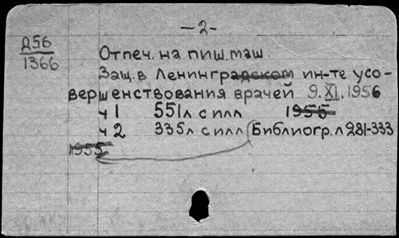 — 2 —
Д56
1366
Отпеч. на пиш. маш.
Защ. в Ленинградском ин-те усо-
вершенствования врачей 9.XI.1956
ч 1 551 л с илл 1955
ч 2 335 л с илл (Библиогр. л 281-333
1955